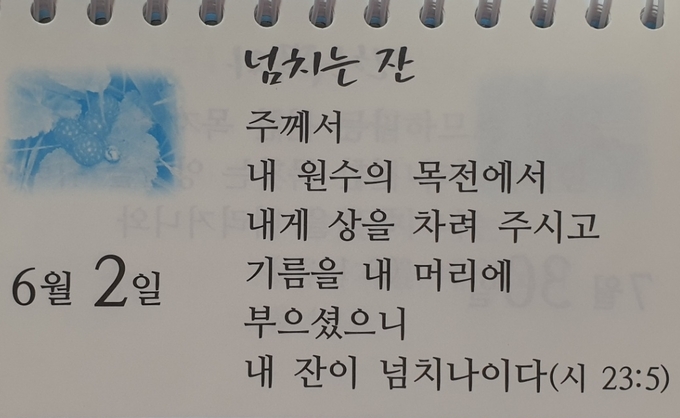 넘치는 잔
주께서
내 원수의 목전에서
내게 상을 차려 주시고
기름을 내 머리에
부으셨으니
내 잔이 넘치나이다(시 23:5)
6월 2일